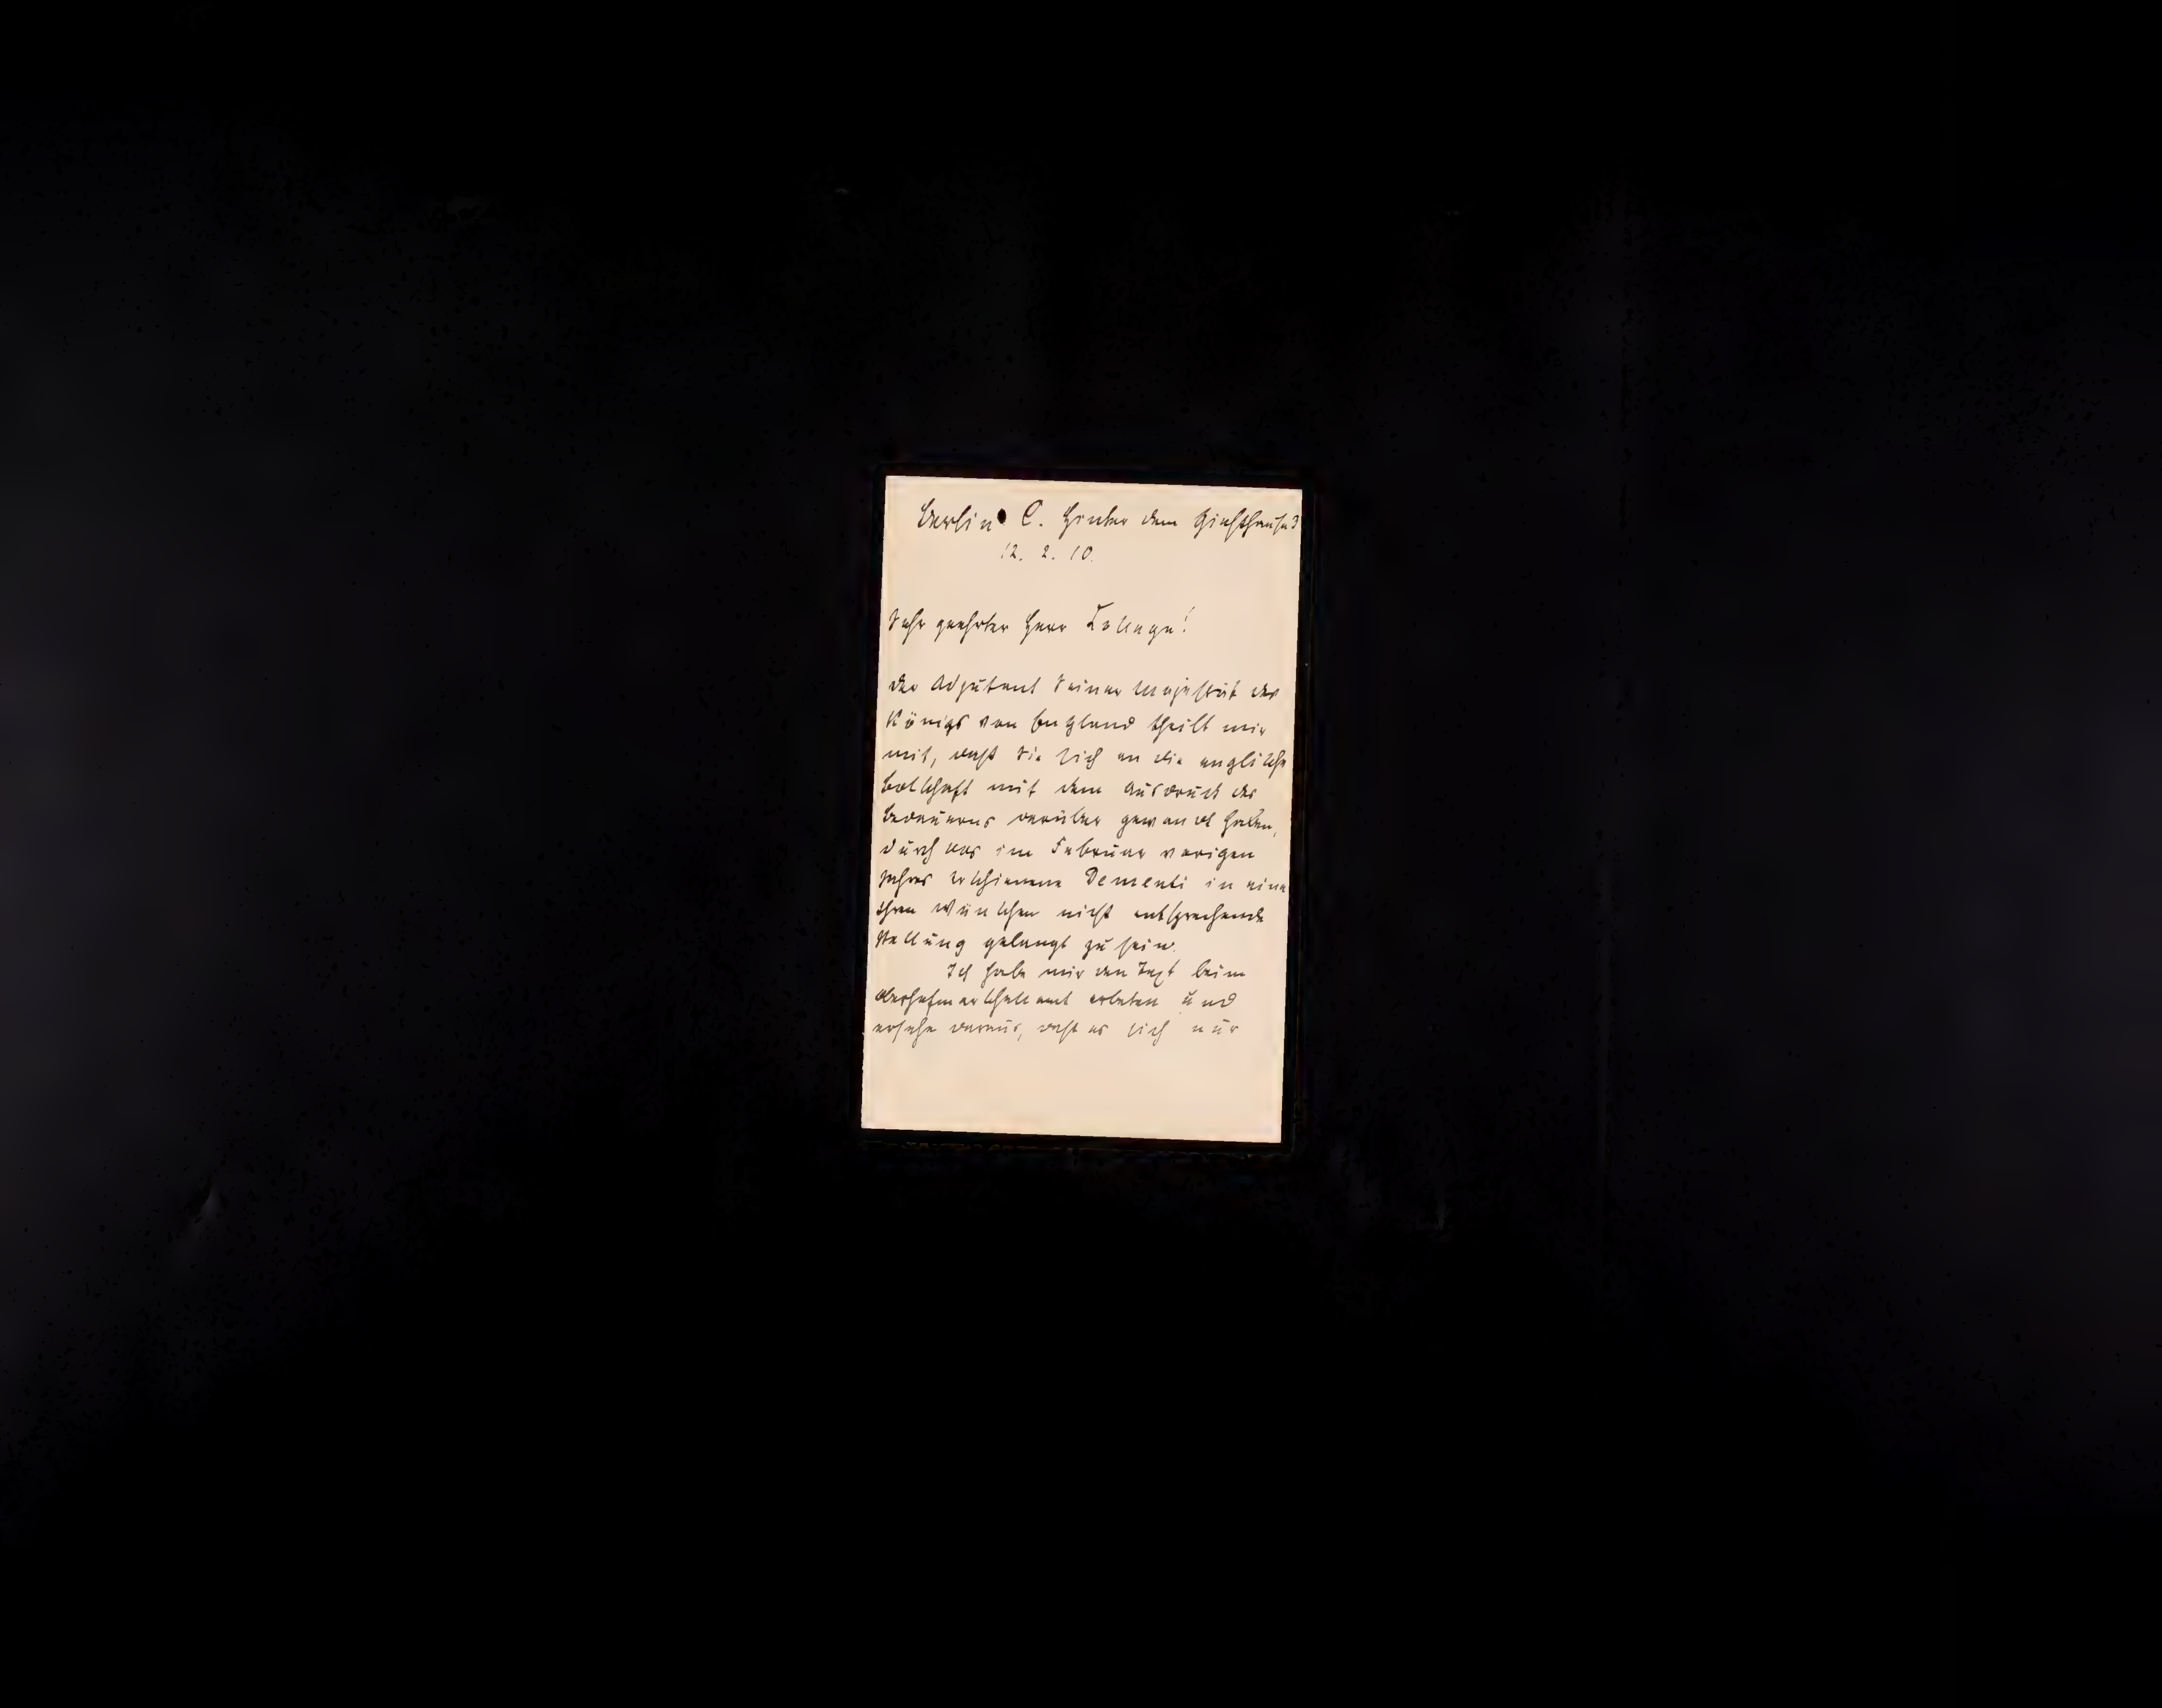 Berlin C. Hinter dem Gießhause 3
12. 2. 10.
Sehr geehrter Herr College!
der Adjutant Seiner Majestät des
Königs von England theilt mir
mit, daß Sie sich an die englische
Botschaft mit dem Ausdruck des
Bedauerns darüber gewandt haben,
durch das im Februar vorigen
Jahres erschienene Dementi in eine
Ihren Wünschen nicht entsprechende
Stellung gelangt zu sein.
Ich habe mir den Text beim
Oberhofmarschallamt erbeten und
ersehe daraus, daß es sich nur